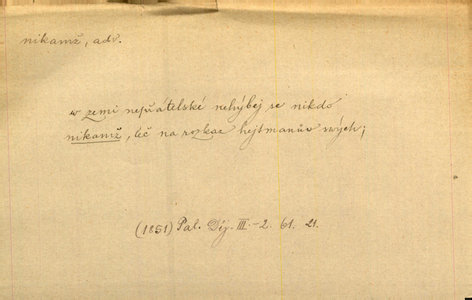 nikamž, adv.
w zemi nepřátelské nehýbej se nikdo
nikamž, léč na rozkaz hejtmanův swých;
(1851) Pal. Děj. III.-2. 61. 21.